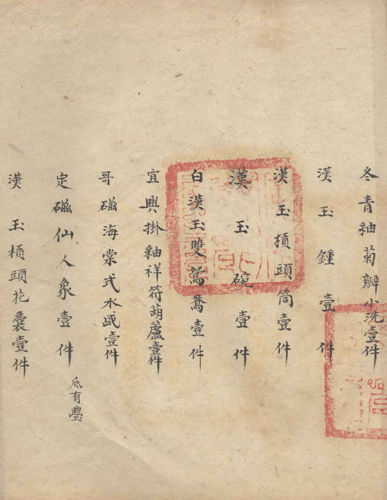 冬青釉菊瓣小洗壹件
漢玉鍾壹件
漢玉槓頭筒壹件
漢玉碗壹件
白漢玉雙鴛鴦壹件
宜興掛釉祥符葫蘆壹件
哥磁海棠式水盛壹件
定磁仙人象壹件
有璺
漢玉槓頭花囊壹件